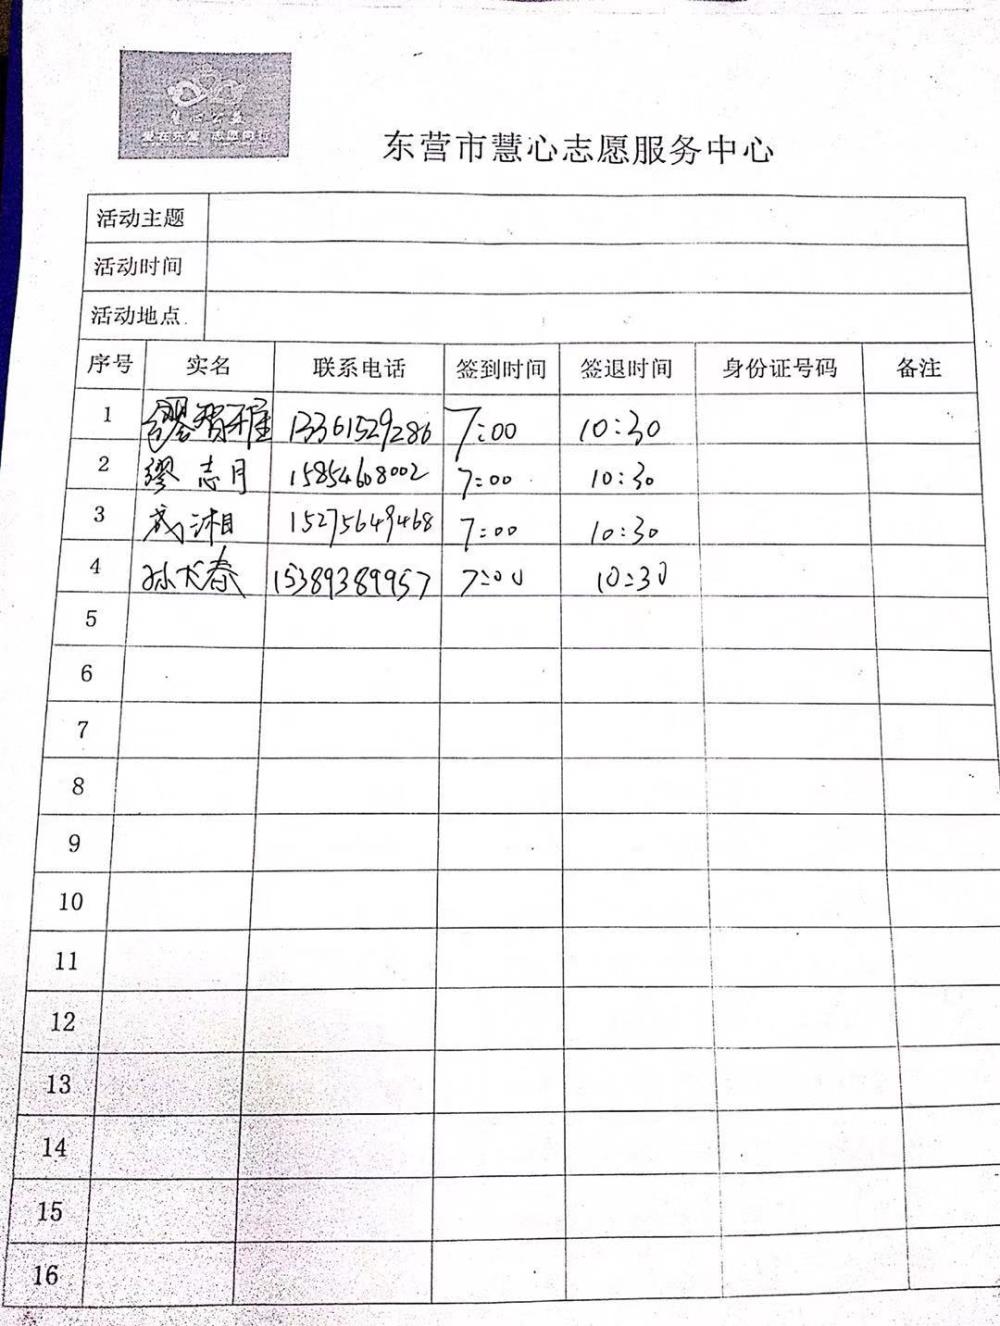 慧心公益
爱在东营 志愿同行
东营市慧心志愿服务中心
活动主题
活动时间
活动地点
序号 实名 联系电话 签到时间 签退时间 身份证号码 备注
1 13361529286 7:00 10:30
2 缪志月 15854608002 7:00 10:30
3 湘 15275649468 7:00 10:30
4 孙大春 15389389957 7:00 10:30
5
6
7
8
9
10
11
12
13
14
15
16